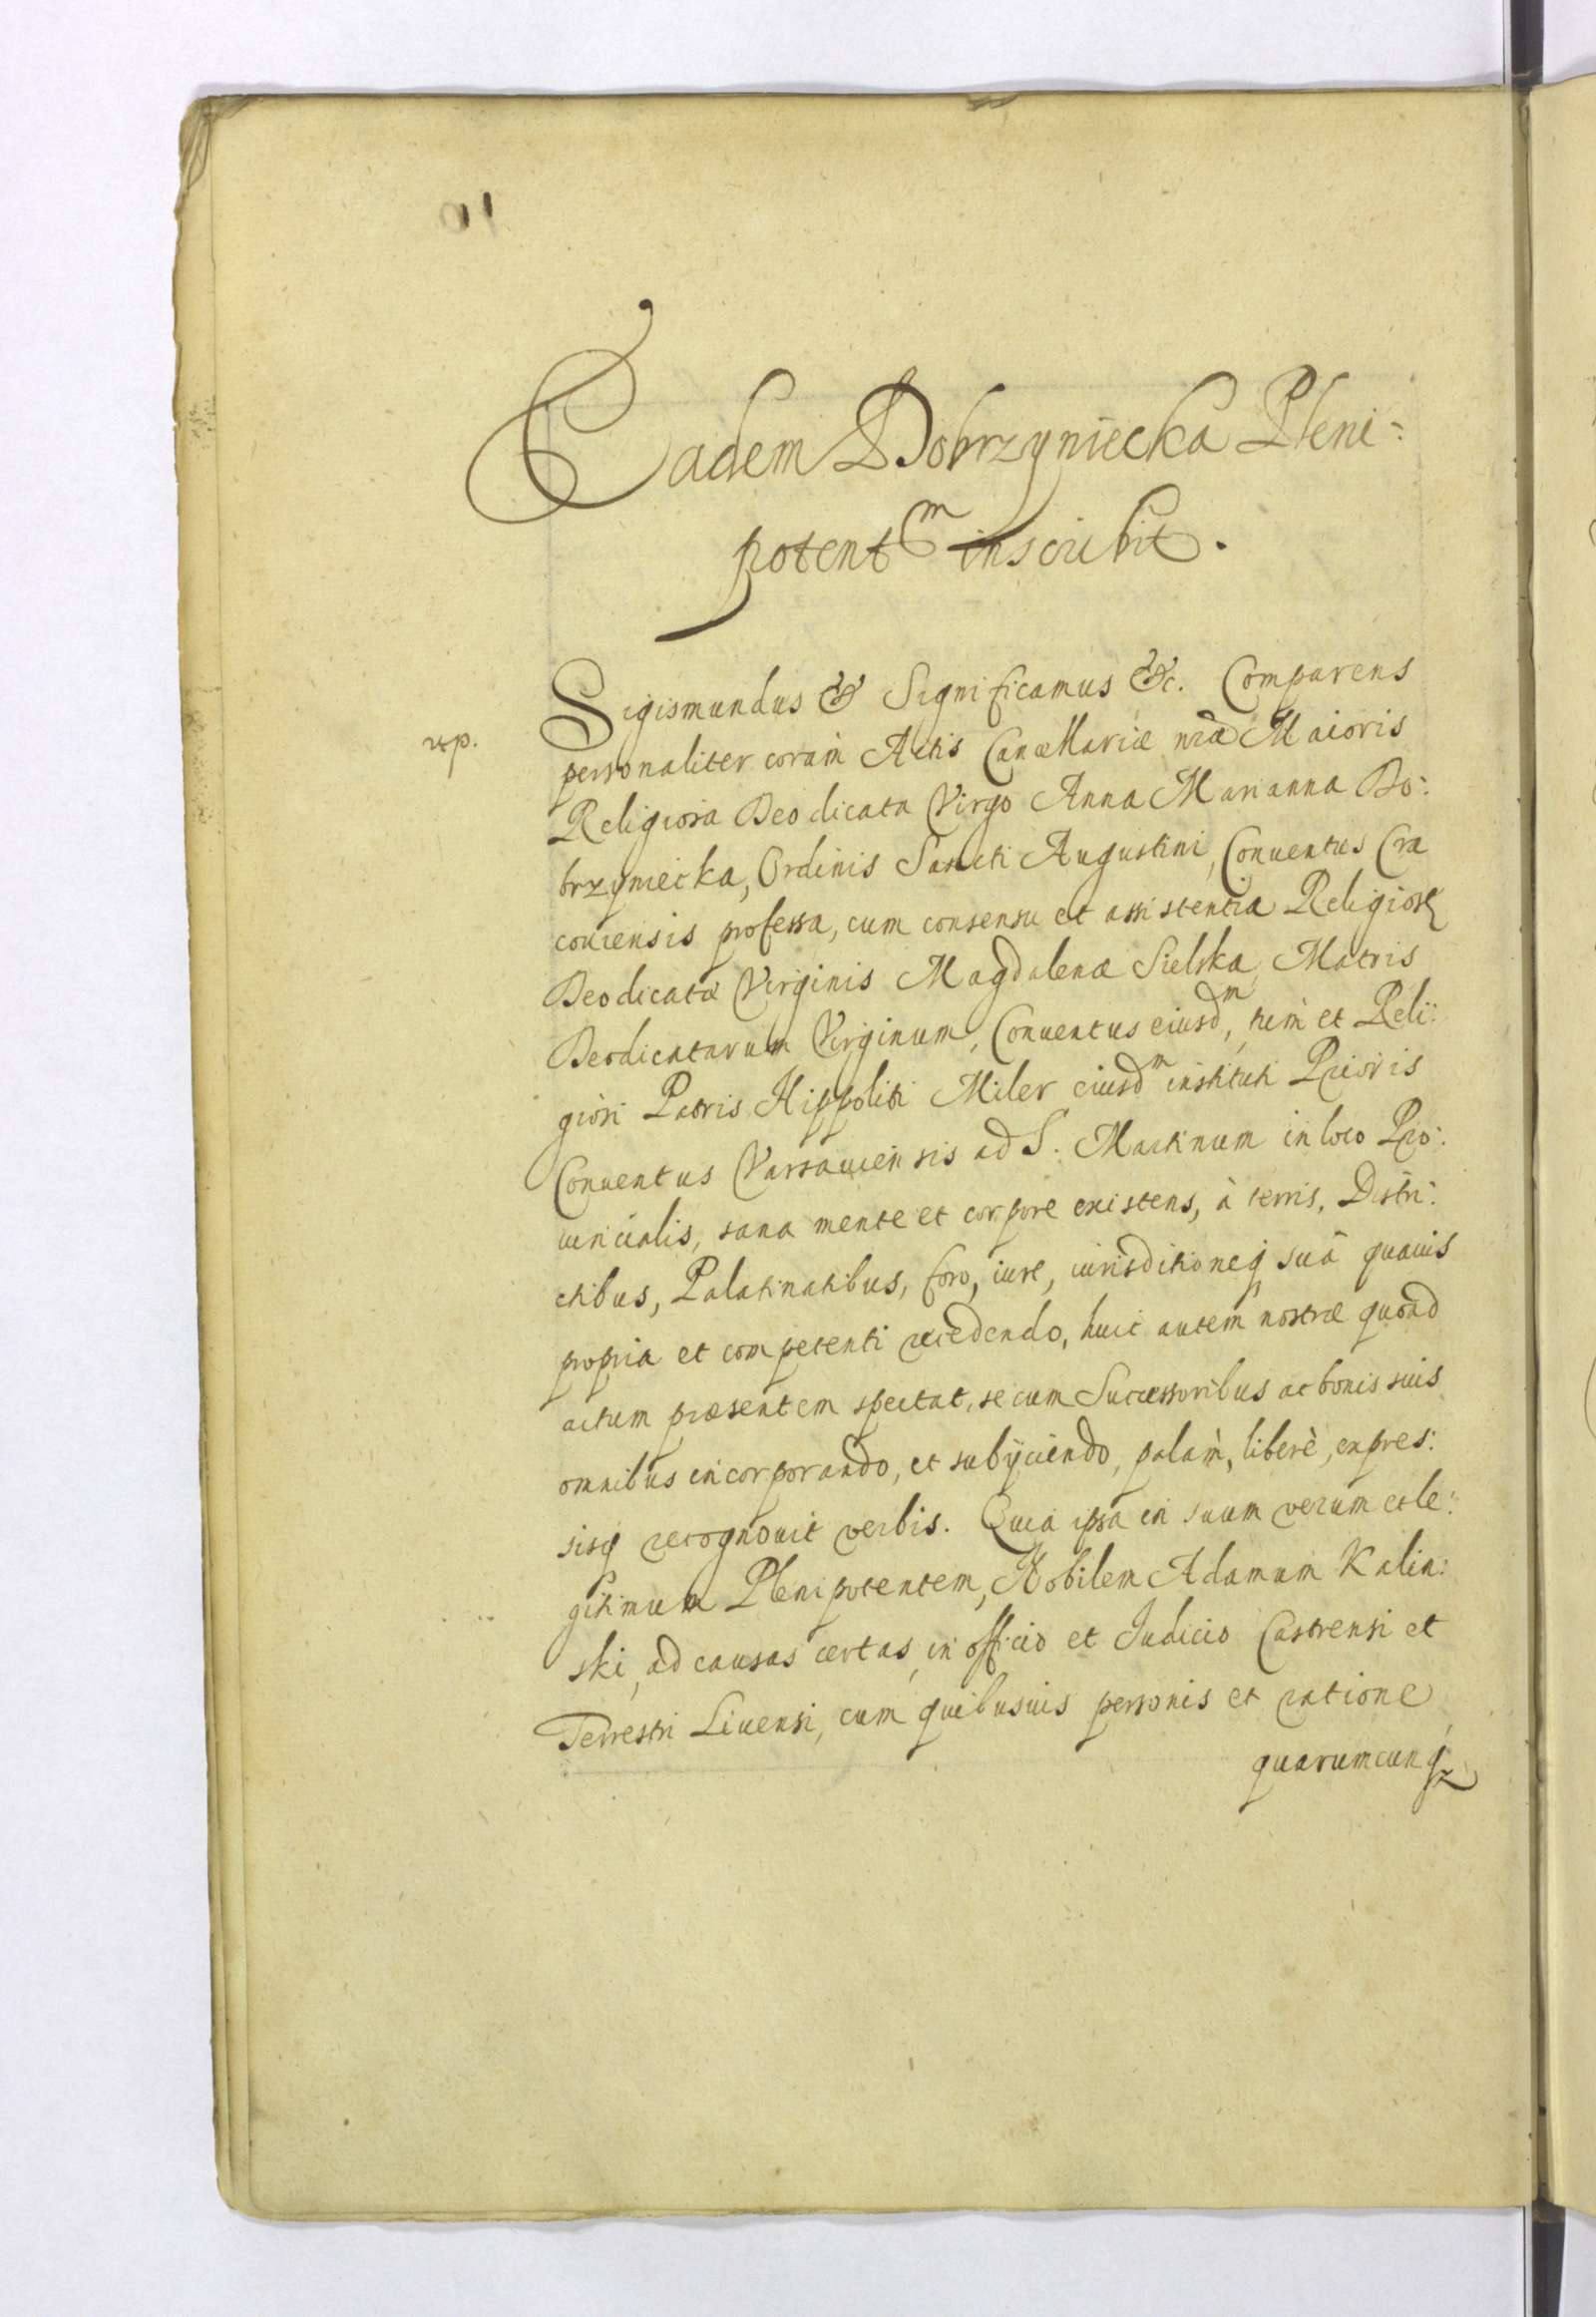 Eadem Dobrzyniecka Pleni:
potentem inscribit.
Sigismundus &c Significamus &c. Comparens
rp.
personaliter coràm Actis Cancellariæ nrae Maioris
Religiosa Deo dicata Virgo Anna Marianna Do:
brzyniecka, Ordinis Sancti Augustini, Conuentus Cra
couiensis professa, cum consensu et assistentia Religiosę
Deodicatæ Virginis Magdalenæ Sielska, Matris
Deodicatarum Virginum, Conuentus eiusdm, tùm et Reli:
giosi Patris Hippoliti Miler eiusdm instituti Prioris
Conuentus Varsauiensis ad S. Martinum in loco Pro:
uincialis, sana mente et corpore existens, à terris, Distri:
ctibus, Palatinatibus, foro, iure, iurisditioneq suâ quauis
propria et competenti recedendo, huic autem nostræ quoad
actum præsentem spectat, se cum Successoribus ac bonis suis
omnibus incorporando, et subÿciendo, palàm, liberè, expres:
sisq recognouit verbis. Quia ipsa in suum verum et le:
gitimum Plenipotentem, Nobilem Adamum Kalin:
ski, ad causas certas, in officio et Iudicio Castrensi et
Terrestri Liuensi, cum quibusuis personis et ratione
quarumcunqz